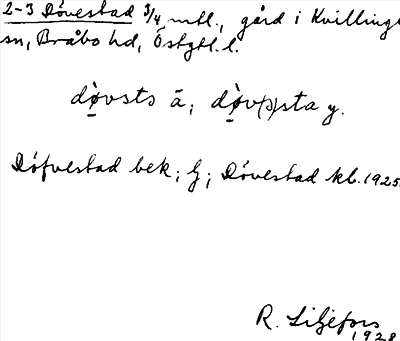 2-3 Dövestad 3/4 mtl., gård i Kvillinge
sn, Bråbo hd, Östgtl. l.
dø̀vsts ä; dø̀v(s)sta y.
Döfvestad bek; G; Dövestad kb. 1925.
R. Liljefors
1928